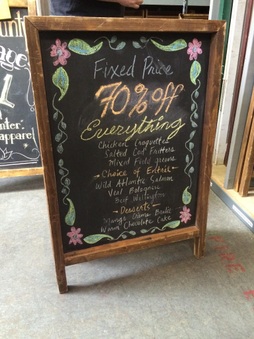 Fixed Price
70% off
Everything
Chicken Croquettes
Salted Cod Fritters
Mixed Field greens
Choice of Entrée
Wild Atlantic Salmon
Veal Bolognese
Beef Wellington
Desserts
Mango Crème Brulée
Warm Chocolate Cake